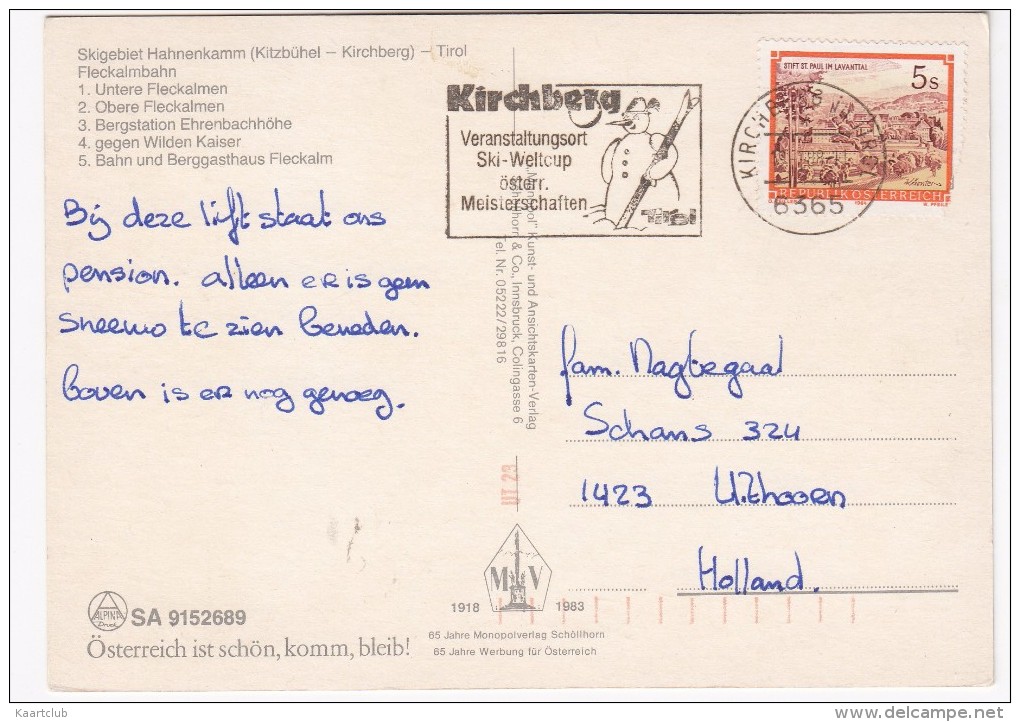 Skigebiet Hahnenkamm (Kitzbühel – Kirchberg) – Tirol
Fleckalmbahn
1. Untere Fleckalmen
2. Obere Fleckalmen
3. Bergstation Ehrenbachhöhe
4. gegen Wilden Kaiser
5. Bahn und Berggasthaus Fleckalm
Bij deze lift staat ons
pension. alleen er is geen
sneeuw te zien beneden.
boven is er nog genoeg.
Kirchberg
Veranstaltungsort
Ski-Weltcup
österr.
Meisterschaften
Tirol
STIFT ST. PAUL IM LAVANTTAL
5s
REPUBLIK ÖSTERREICH
KIRCHB
6365
Kunst- und Ansichtskarten-Verlag
& Co., Innsbruck, Colingasse 6
Tel. Nr. 05222/29816
fam. Nagtegaal
Schans 324
1423 Uithoorn
Holland.
UT 23
M V
1918 1983
65 Jahre Monopolverlag Schöllhorn
65 Jahre Werbung für Österreich
ALPINA
Druck
SA 9152689
Österreich ist schön, komm, bleib!
Kaartclub
www.delcampe.net